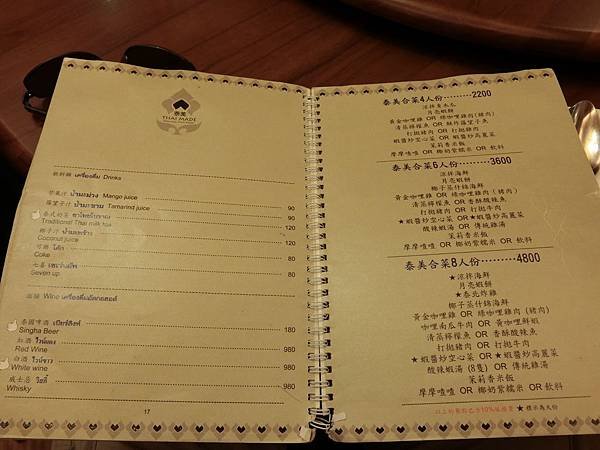 泰美
THAI MADE
飲料類 เครื่องดื่ม Drinks
芒果汁 น้ำมะม่วง Mango juice 90
羅望子汁 น้ำมะขาม Tamarind juice 90
泰式奶茶 ชาไทยโบราณ
Traditional Thai milk tea 120
椰子汁 น้ำมะพร้าว
Coconut juice 120
可樂 โค้ก
Coke 60
七喜
Seven up 60
酒類 Wine เครื่องดื่มแอลกอฮอล์
泰國啤酒 เบียร์สิงห์
Singha Beer 180
紅酒 ไวน์แดง
Red Wine 980
白酒 ไวน์ขาว
White wine 980
威士忌 วิสกี้
Whisky 980
17
泰美合菜4人份………2200
涼拌青木瓜
月亮蝦餅
黃金咖哩雞 OR 綠咖哩雞肉(豬肉)
清蒸檸檬魚 OR 酥炸羅望子魚
打拋豬肉 OR 打拋雞肉
蝦醬炒空心菜 OR 蝦醬炒高麗菜
茉莉香米飯
摩摩喳喳 OR 椰奶紫糯米 OR 飲料
泰美合菜6人份………3600
涼拌海鮮
月亮蝦餅
椰子蒸什錦海鮮
黃金咖哩雞 OR 綠咖哩雞肉(豬肉)
清蒸檸檬魚 OR 香酥酸辣魚
打拋豬肉 OR 打拋牛肉
★蝦醬炒空心菜 OR ★蝦醬炒高麗菜
酸辣蝦湯 OR 傳統雞湯
茉莉香米飯
摩摩喳喳 OR 椰奶紫糯米 OR 飲料
泰美合菜8人份………4800
★涼拌海鮮
月亮蝦餅
★泰北炸雞
椰子蒸什錦海鮮
黃金咖哩雞 OR 綠咖哩雞肉(豬肉)
咖哩南瓜牛肉 OR 黃金咖哩鮮蝦
清蒸檸檬魚 OR 香酥酸辣魚
打拋豬肉 OR 打拋牛肉
★蝦醬炒空心菜 OR ★蝦醬炒高麗菜
酸辣蝦湯(8隻) OR 傳統雞湯
茉莉香米飯
摩摩喳喳 OR 椰奶紫糯米 OR 飲料
10%服務費 ★標示為大份